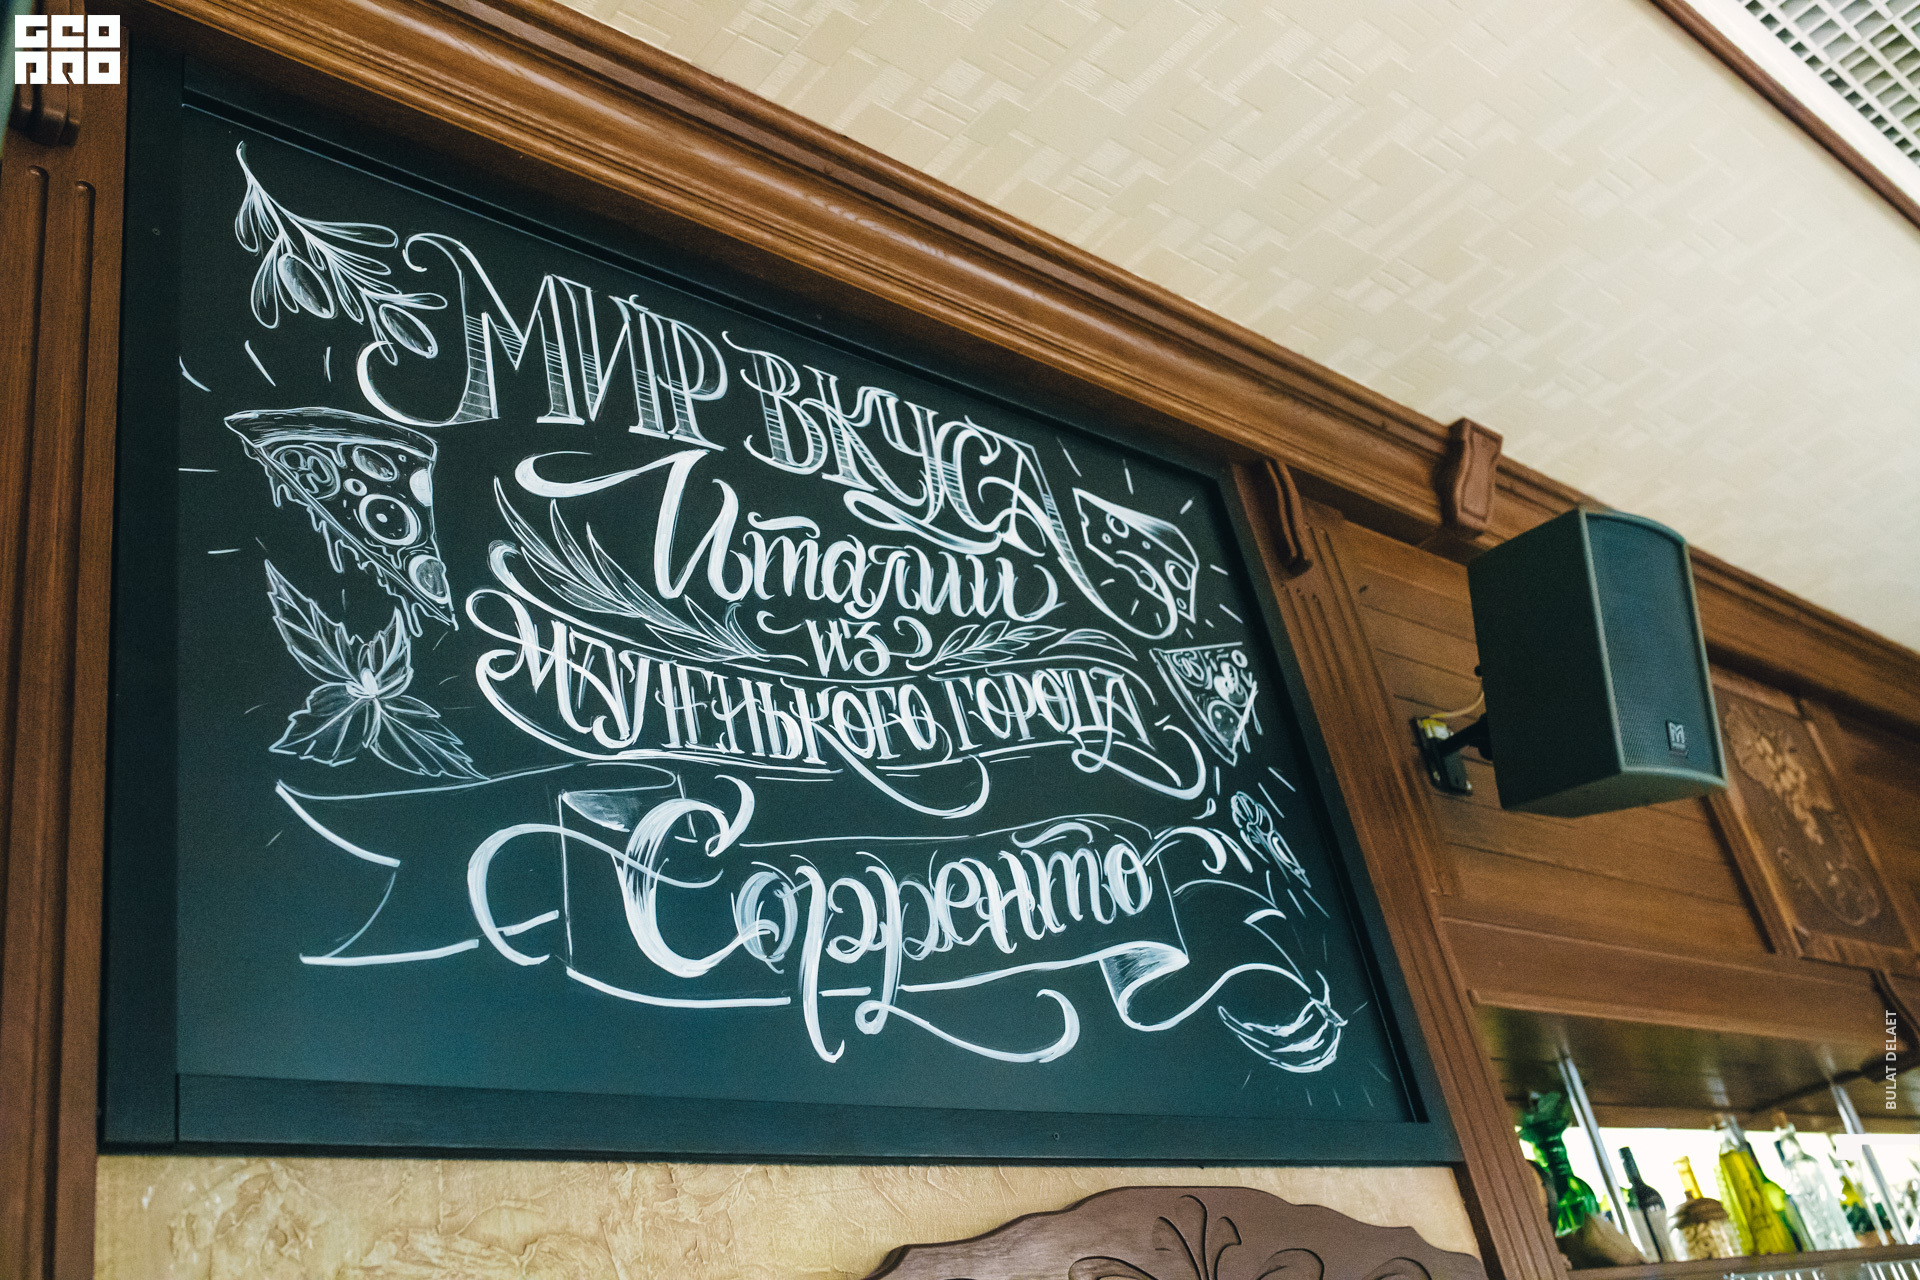 GEO
PRO
МИР ВКУСА
Италии
из
МАЛЕНЬКОГО ГОРОДА
Сорренто
BULAT DELAET